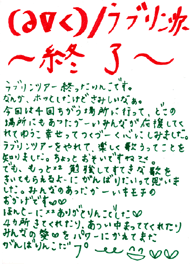 (a∇く)/ラブリンツアー
〜終了〜
ラブリンツアー終ったりんこです。
なんか、ホッとしたけどさみしいなぁ。
今回は十国ちがう場所に行って、どこの
場所にもあったかーいみんなが応援してく
れてゆうこ幸せってつくづーく心にしみました。
ラブリンツアーをやれて、楽しく歌うってことを
知りました。ちょっとおそいですねミミ。
でも、もっとミミ勉強してすてきな歌を
きいてもらえるよーにがんばりたいって思いま
した。みんなのあったかーいキモチの
おかげです
ほんとーにミミありがとりんこでした
4カ所きてくれたり、あつい中まっててくれたり
みんなの愛パワーにかえてまた
がんばりんこだプ